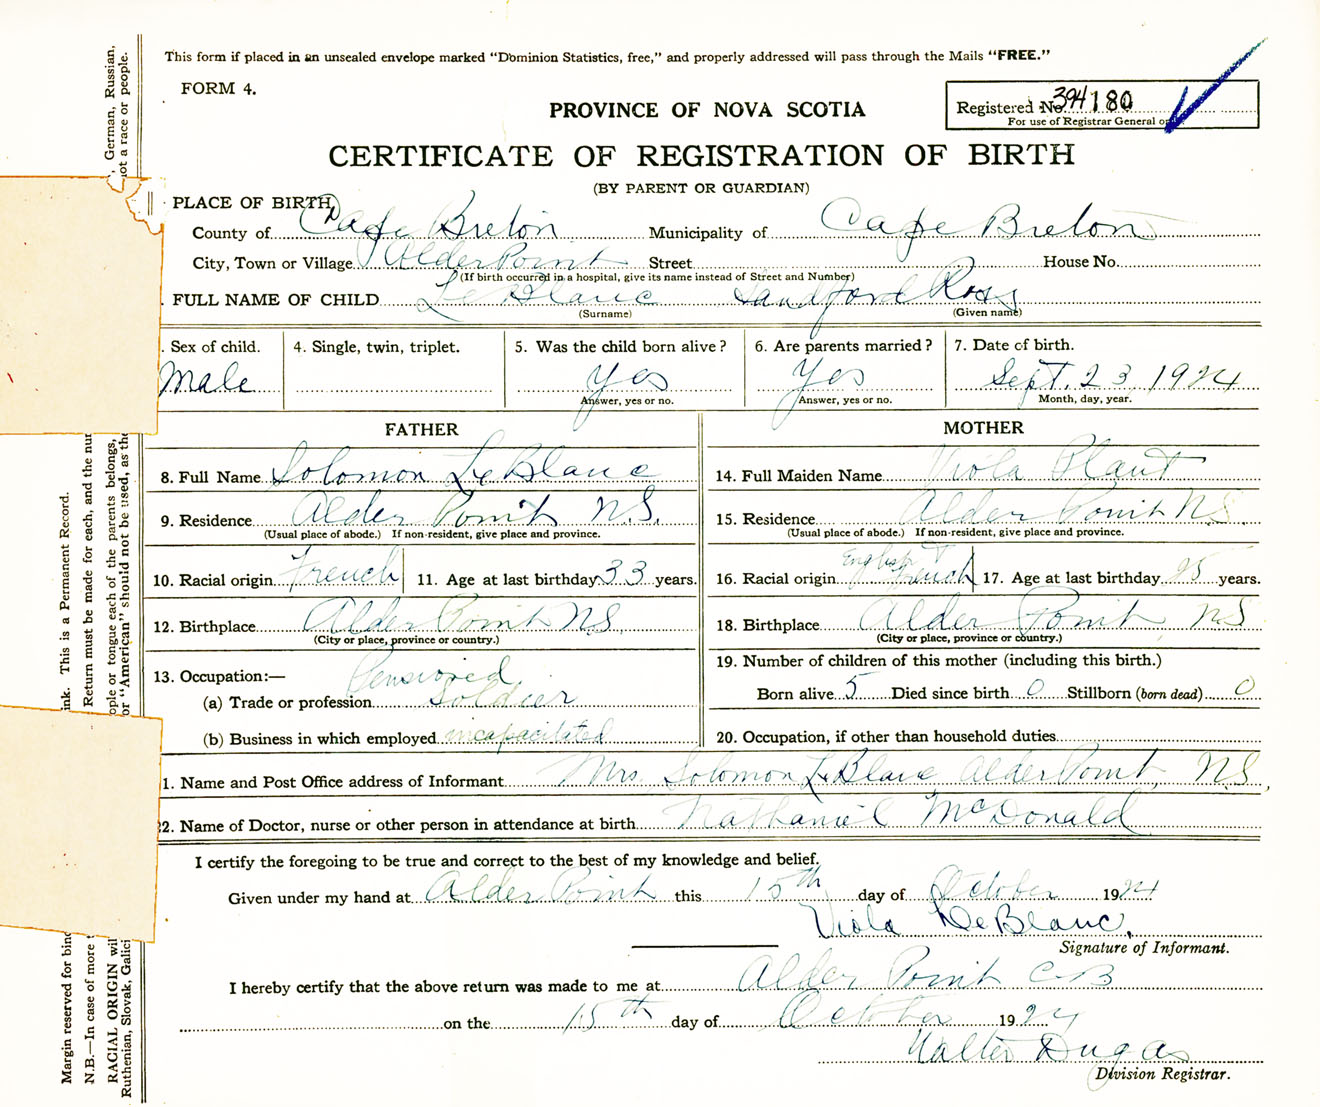 This form if placed in an unsealed envelope marked "Dominion Statistics, free," and properly addressed will pass through the Mails "FREE."
FORM 4.
Registered No. 394180
For use of Registrar General
PROVINCE OF NOVA SCOTIA
CERTIFICATE OF REGISTRATION OF BIRTH
(BY PARENT OR GUARDIAN)
PLACE OF BIRTH
County of Cape Breton Municipality of Cape Breton
City, Town or Village Alder Point Street House No.
(If birth occurred in a hospital, give its name instead of Street and Number)
FULL NAME OF CHILD LeBlanc Sandford Ross
(Surname) (Given name)
. Sex of child. 4. Single, twin, triplet. 5. Was the child born alive? 6. Are parents married? 7. Date of birth.
Male Yes Yes Sept. 23 1924
Answer, yes or no. Answer, yes or no. Month, day, year.
FATHER MOTHER
8. Full Name Solomon LeBlanc 14. Full Maiden Name Viola Plant
9. Residence Alder Point N.S. 15. Residence Alder Point N.S.
(Usual place of abode.) If non-resident, give place and province. (Usual place of abode.) If non-resident, give place and province.
10. Racial origin French 11. Age at last birthday 33 years. 16. Racial origin English French 17. Age at last birthday 25 years.
12. Birthplace Alder Point N.S. 18. Birthplace Alder Point N.S.
(City or place, province or country.) (City or place, province or country.)
13. Occupation:— Pensioned 19. Number of children of this mother (including this birth.)
(a) Trade or profession Soldier Born alive 5 Died since birth 0 Stillborn (born dead) 0
(b) Business in which employed incapacitated 20. Occupation, if other than household duties
1. Name and Post Office address of Informant Mrs. Solomon LeBlanc Alder Point, N.S.,
22. Name of Doctor, nurse or other person in attendance at birth Nathaniel McDonald
I certify the foregoing to be true and correct to the best of my knowledge and belief.
Given under my hand at Alder Point this 15th day of October 1924
Viola LeBlanc.
Signature of Informant.
I hereby certify that the above return was made to me at Alder Point C-B
on the 15th day of October 1924
Walter Dugas
Division Registrar.
Margin reserved for ink. This is a Permanent Record.
N.B.—In case of more Return must be made for each, and the
RACIAL ORIGIN people or tongue each of the parents belongs, German, Russian,
Ruthenian, Slovak, or "American" should not be used, as the not a race or people.